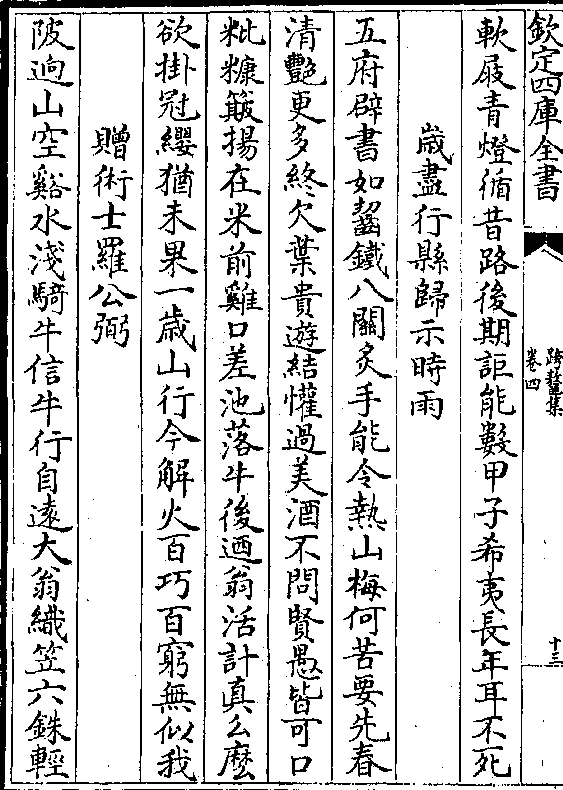 欽定四庫全書
跨鼇集
卷四
十三
軟屐青燈循昔路後期詎能數甲子希夷長年耳不死
歲盡行縣歸示時雨
五府辟書如齧鐵八關炙手能令熱山梅何苦要先春
清艷更多終欠葉貴遊結懽過美酒不問賢愚皆可口
粃糠簸揚在米前雞口差池落牛後迺翁活計真么麽
欲掛冠纓猶未果一歲山行今解火百巧百窮無似我
贈術士羅公弼
陂逈山空谿水淺騎牛信牛行自遠大翁織笠六銖輕